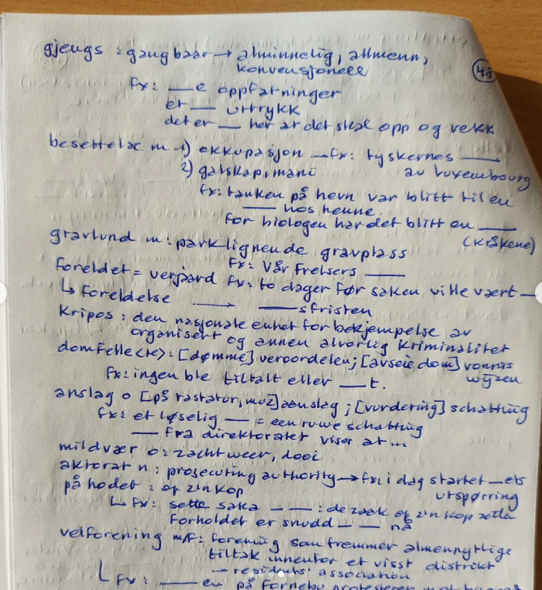 gjengs : gangbaar → alminnelig, allmenn,
konvensjonell
fx: __e oppfatninger
et __ uttrykk
det er __ her at det skal opp og vekk
besettelse m 1) okkupasjon → fx: tyskernes __
av Luxembourg
2) galskap, mani
fx: tanken på hevn var blitt til en
__ hos henne.
for biologen har det blitt en __
(kråkene)
gravlund m : parklignende gravplass
fx: Vår Frelsers __
foreldet = verjaard fx: to dager før saken ville vært __
↳ foreldelse → __sfristen
Kripos : den nasjonale enhet for bekjempelse av
organisert og annen alvorlig kriminalitet
domfelle <te> : [dømme] veroordelen ; [avsie dom] vonnis
wijzen
fx: ingen ble tiltalt eller __t.
anslag o [på tastatur, muz] aanslag ; [vurdering] schatting
fx: et løselig __ = een ruwe schatting
__ fra direktoratet viser at ...
mildvær o : zacht weer, dooi
aktorat n : prosecuting authority → fx: i dag startet __ets
utspørring
på hodet : op z'n kop
↳ fx: sette saka __ __ : de zaak op z'n kop zetten
Forholdet er snudd __ __ nå
velforening m/f : forening som fremmer almennyttige
tiltak innenfor et visst distrikt
→ residents' association
↳ fx: __en på Fornebu protesterer mot